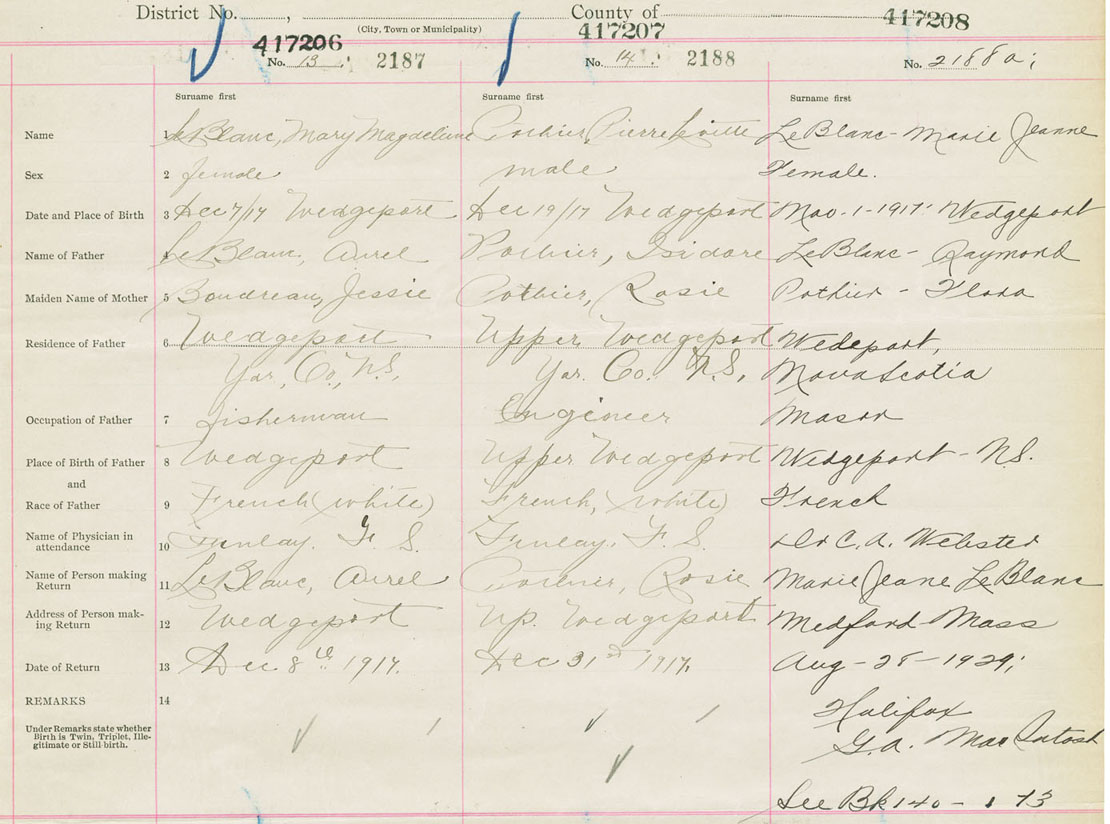 District No. , County of 417208
(City, Town or Municipality)
417206 417207
No. 13 2187 No. 14 2188 No. 2188a;
Surname first Surname first Surname first
Name 1 LeBlanc, Mary Magdeline Pothier, Pierre LeBlanc - Marie Jeanne
Sex 2 female male Female.
Date and Place of Birth 3 Dec 7/17 Wedgeport Dec 19/17 Wedgeport Nov. 1-1917. Wedgeport
Name of Father 4 LeBlanc, Aurel Pothier, Isidore LeBlanc - Raymond
Maiden Name of Mother 5 Boudreau, Jessie Pothier, Rosie Pothier - Flora
Residence of Father 6 Wedgeport Upper Wedgeport Wedeport,
Yar. Co., N.S. Yar. Co. N.S., Nova Scotia
Occupation of Father 7 Fisherman Engineer Mason
Place of Birth of Father 8 Wedgeport Upper Wedgeport Wedgeport - N.S.
and
Race of Father 9 French (white) French, (white) French
Name of Physician in
attendance 10 F. S. F. S. Dr C. A. Webster
Name of Person making
Return 11 LeBlanc, Aurel Pothier, Rosie Marie Jeane LeBlanc
Address of Person mak-
ing Return 12 Wedgeport Up. Wedgeport Medford Mass
Date of Return 13 Dec. 8th 1917. Dec 31st 1917. Aug - 28 - 1929;
REMARKS 14 Halifax
Under Remarks state whether
Birth is Twin, Triplet, Ille-
gitimate or Still birth.
G. A. MacIntosh
See Bk 140 - 173